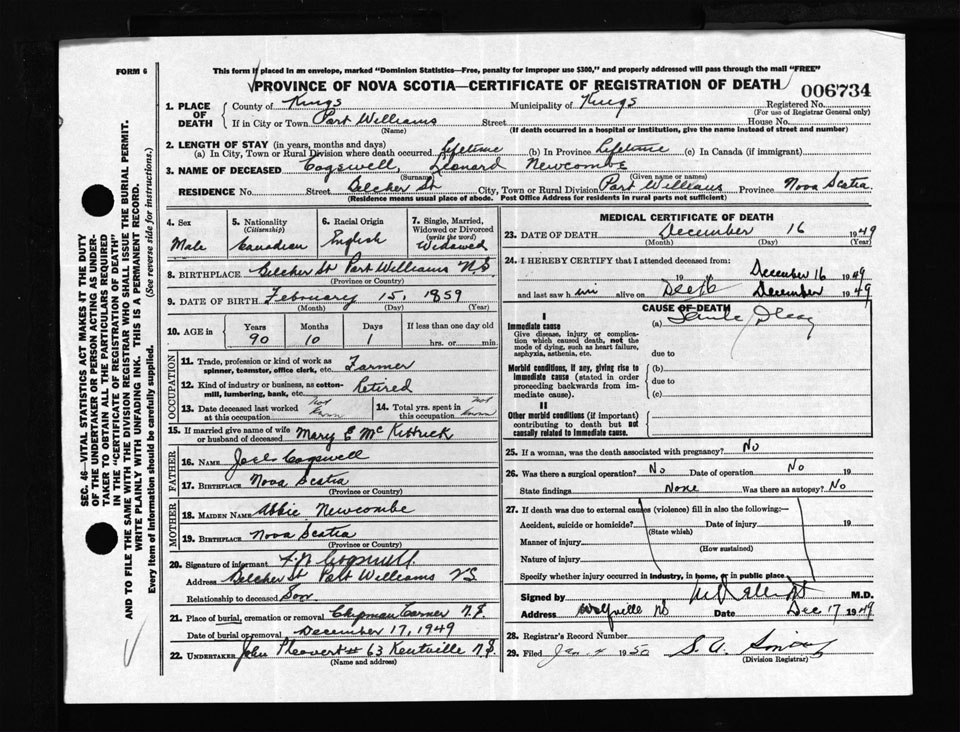 FORM 6
This form if placed in an envelope, marked "Dominion Statistics—Free, penalty for improper use $300," and properly addressed will pass through the mail "FREE"
PROVINCE OF NOVA SCOTIA—CERTIFICATE OF REGISTRATION OF DEATH
006734
1. PLACE OF DEATH
County of Kings Municipality of Kings Registered No.
(For use of Registrar General only)
If in City or Town Port Williams Street House No.
(Name) (If death occurred in a hospital or institution, give the name instead of street and number)
2. LENGTH OF STAY (in years, months and days)
(a) In City, Town or Rural Division where death occurred lifetime (b) In Province Lifetime (c) In Canada (if immigrant)
3. NAME OF DECEASED Cogswell, Leonard Newcombe
(Surname) (Given name or names)
RESIDENCE No. Street Belcher St City, Town or Rural Division Port Williams Province Nova Scotia.
(Residence means usual place of abode. Post Office Address for residents in rural parts not sufficient)
4. Sex
Male
5. Nationality
(Citizenship)
Canadian
6. Racial Origin
English
7. Single, Married, Widowed or Divorced
(write the word)
Widowed
8. BIRTHPLACE Belcher St Port Williams N.S.
(Province or Country)
9. DATE OF BIRTH February 15, 1859
(Month) (Day) (Year)
10. AGE in
Years Months Days If less than one day old
90 10 1 hrs. or min.
OCCUPATION
11. Trade, profession or kind of work as spinner, teamster, office clerk, etc. Farmer
12. Kind of industry or business, as cotton-mill, lumbering, bank, etc. Retired
13. Date deceased last worked at this occupation not known
14. Total yrs. spent in this occupation not known
15. If married give name of wife or husband of deceased Mary E McKittrick
FATHER
16. NAME Joel Cogswell
17. BIRTHPLACE Nova Scotia
(Province or Country)
MOTHER
18. MAIDEN NAME Abbie Newcombe
19. BIRTHPLACE Nova Scotia
(Province or Country)
20. Signature of informant Cogswell
Address Belcher St Port Williams N.S.
Relationship to deceased Son
21. Place of burial, cremation or removal Chipman Corner N.S.
Date of burial or removal December 17, 1949
22. UNDERTAKER John 63 Kentville N.S.
(Name and address)
MEDICAL CERTIFICATE OF DEATH
23. DATE OF DEATH December 16 1949
(Month) (Day) (Year)
24. I HEREBY CERTIFY that I attended deceased from:
19 to December 16 1949
and last saw him alive on December 1949
CAUSE OF DEATH
I
Immediate cause
(a) Senile
Give disease, injury or complication which caused death, not the mode of dying, such as heart failure, asphyxia, asthenia, etc.
due to
Morbid conditions, if any, giving rise to immediate cause (stated in order proceeding backwards from immediate cause).
(b)
due to
(c)
II
Other morbid conditions (if important) contributing to death but not causally related to immediate cause.
25. If a woman, was the death associated with pregnancy? No
26. Was there a surgical operation? No Date of operation No 19
State findings None Was there an autopsy? No
27. If death was due to external causes (violence) fill in also the following:—
Accident, suicide or homicide? Date of injury 19
(State which)
Manner of injury
(How sustained)
Nature of injury
Specify whether injury occurred in industry, in home, or in public place
Signed by M.D.
Address Wolfville NS Date Dec 17 1949
28. Registrar's Record Number
29. Filed Jan 4 1950
(Division Registrar)
SEC. 46—VITAL STATISTICS ACT MAKES IT THE DUTY
OF THE UNDERTAKER OR PERSON ACTING AS UNDER-
TAKER TO OBTAIN ALL THE PARTICULARS REQUIRED
IN THE "CERTIFICATE OF REGISTRATION OF DEATH"
AND TO FILE THE SAME WITH THE DIVISION REGISTRAR WHO SHALL ISSUE THE BURIAL PERMIT.
WRITE PLAINLY WITH UNFADING INK. THIS IS A PERMANENT RECORD.
Every item of information should be carefully supplied. (See reverse side for instructions.)